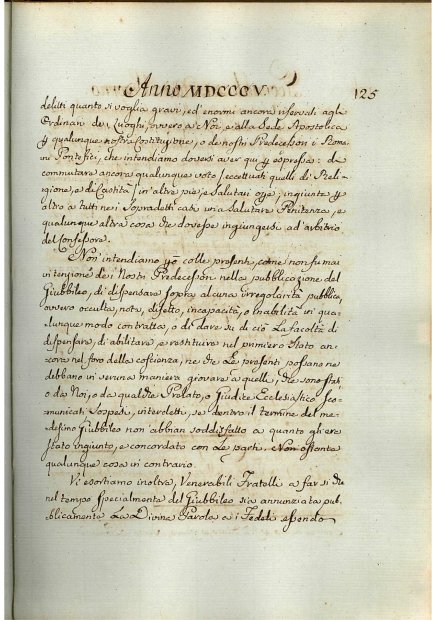 Anno MDCCCV
125
delitti quanto si voglia gravi, ed enormi ancora riservati agli
Ordinari de i Luoghi, ovvero a Noi, e alla Sede Apostolica
p qualunque nostra Costituzione, o de nostri Predecessori i Roma
ni Pontefici, che intendiamo doversi aver qui p espressa: da
commutare ancora qualunque voto (eccettuati quelli di Reli-
gione, e di Castità) in altre pie, e Salutari opre, ingiunta p
altro a tutti nei Sopradetti casi una Salutare Penitenza, e
qualunque altra cosa che dovesse ingiungersi ad'arbitrio
del Confessore.
Non intendiamo po colle presenti, come non fu mai
intenzione de i Nostri Predecessori nella pubblicazione del
Giubbileo, di dispensare sopra alcuna irregolarità pubblica,
ovvero occulta, nota, difetto, incapacità, o Inabilità in qua-
lunque modo contratta, o di dare su di ciò La facoltà di
dispensare, di abilitare, e restituire nel primiero stato an-
cora nel foro della coscienza, ne che Le presenti possano ne
debbano in veruna maniera giovare a quelli, che sono stati
o da Noi, o da qualche Prelato, o Giudice Ecclesiastico Sco-
municati Sospesi, interdetti, se dentro il termine del me-
desimo Giubbileo non abbian soddisfatto a quanto gli era
stato ingiunto, e concordato con Le parti. Non ostante
qualunque cosa in contrario.
Vi esortiamo inoltre, Venerabili Fratelli a far si che
nel tempo specialmente del Giubbileo sia annunziata pub-
blicamente La Divina Parola a i Fedeli essendo